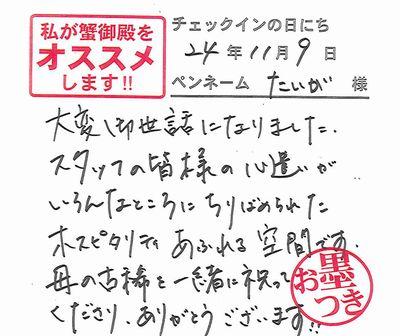 私が蟹御殿を
オススメ
します!!
チェックインの日にち
24年11月9日
ペンネーム たいが 様
大変お世話になりました.
スタッフの皆様の心遣いが
いろんなところにちりばめられた
ホスピタリティあふれる空間です.
母の古稀を一緒に祝って
くださり、ありがとうございます!!
お墨
つき